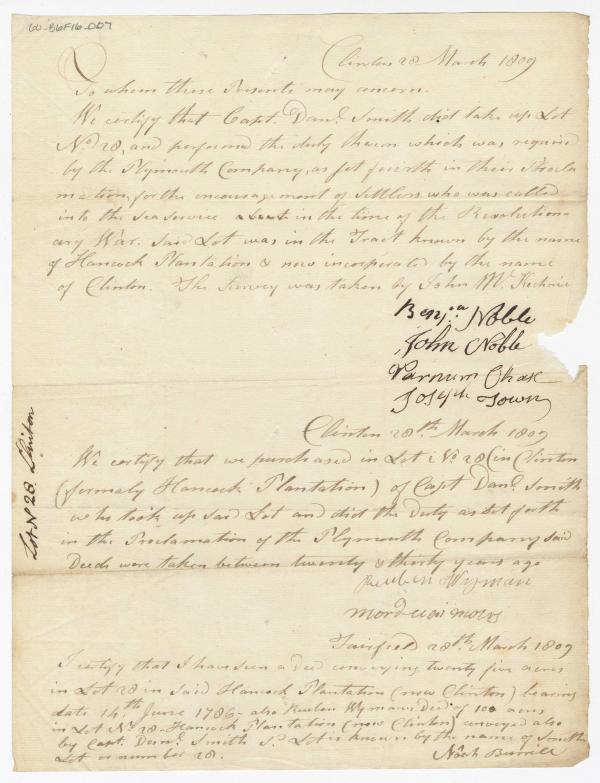 60-B6F16-007
Clinton 28 March 1809
To whom these Presents may concern.
We certify that Capt. Danl. Smith did take up Lot
No. 28, and performed the duty theron which was required
by the Plymouth Company, as set fourth in their Procla
mation, for the encouragement of settlers who was called
into the sea service in the time of the Revolution-
ary War. Said Lot was in the Tract known by the name
of Hancock Plantation & now incorporated by the name
of Clinton. The Survey was taken by John McKechnie
Benja Noble
John Noble
Varnum Chase
Joseph Town
Clinton 28th. March 1809
We certify that we purchased in Lot No. 28 (in Clinton
(formaly Hancock Plantation) of Capt Danl. Smith
who took up said Lot and did the Duty as set forth
in the Proclamation of the Plymouth Company said
Deeds were taken between twenty & thirty years ago
Reuben Wyman
Mordecai
Fairfield 28th. March 1809
I certify that I have seen a deed conveying twenty five acres
in Lot 28 in said Hancock Plantation (now Clinton) bearing
date 14th June 1786- also Reuben Wymans Deed of 100 acres
in Lot No. 28- Hancock Plantation (now Clinton) conveyed also
by Capt. Danl. Smith Sd. Lot is known by the name of Smiths
Lot or number 28.
Noah Burrill
Lot No 28 Clinton